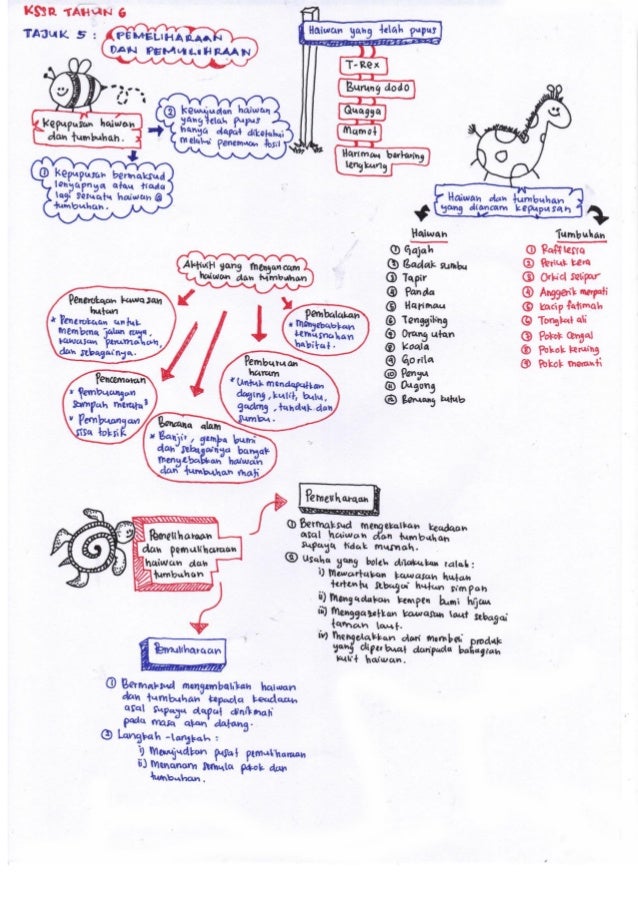 KSSR TAHUN 6
TAJUK 5 : PEMELIHARAAN
DAN PEMULIHRAAN
Kepupusan haiwan
dan tumbuhan.
② Kewujudan haiwan
yang telah pupus
hanya dapat diketahui
melalui penemuan fosil
① Kepupusan bermaksud
lenyapnya atau tiada
lagi sesuatu haiwan @
tumbuhan.
Haiwan yang telah pupus
T-Rex
Burung dodo
Quagga
Mamot
Harimau bertaring
lengkung
Haiwan dan tumbuhan
yang diancam kepupusan
Haiwan
① Gajah
② Badak sumbu
③ Tapir
④ Panda
⑤ Harimau
⑥ Tenggiling
⑦ Orang utan
⑧ Koala
⑨ Gorila
⑩ Penyu
⑪ Dugong
⑫ Beruang kutub
Tumbuhan
① Rafflesia
② Periuk kera
③ Orkid selipar
④ Anggerik merpati
⑤ Kacip fatimah
⑥ Tongkat ali
⑦ Pokok Cengal
⑧ Pokok keruing
⑨ Pokok meranti
Aktiviti yang mengancam
haiwan dan tumbuhan
Penerokaan kawasan
hutan
* Penerokaan untuk
membina jalan raya,
kawasan perumahan,
dan sebagainya.
Pencemaran
* Pembuangan
sampah merata²
* Pembuangan
sisa toksik
Bencana alam
* Banjir, gempa bumi
dan sebagainya banyak
menyebabkan haiwan
dan tumbuhan mati
Pemburuan
haram
* Untuk mendapatkan
daging, kulit, bulu,
gading, tanduk dan
sumbu.
Pembalakan
* Menyebabkan
kemusnahan
habitat.
Pemeliharaan
dan pemuliharaan
haiwan dan
tumbuhan
Pemeliharaan
① Bermaksud mengekalkan keadaan
asal haiwan dan tumbuhan
supaya tidak musnah.
② Usaha yang boleh dilakukan ialah :
i) Mewartakan kawasan hutan
tertentu sebagai hutan simpan
ii) Mengadakan kempen bumi hijau
iii) Menggazetkan kawasan laut sebagai
taman laut.
iv) Mengelakkan dari membeli produk
yang diperbuat daripada bahagian
kulit haiwan.
Pemuliharaan
① Bermaksud mengembalikan haiwan
dan tumbuhan kepada keadaan
asal supaya dapat dinikmati
pada masa akan datang.
② Langkah-langkah :
i) Mewujudkan pusat pemuliharaan
ii) Menanam semula pokok dan
tumbuhan.